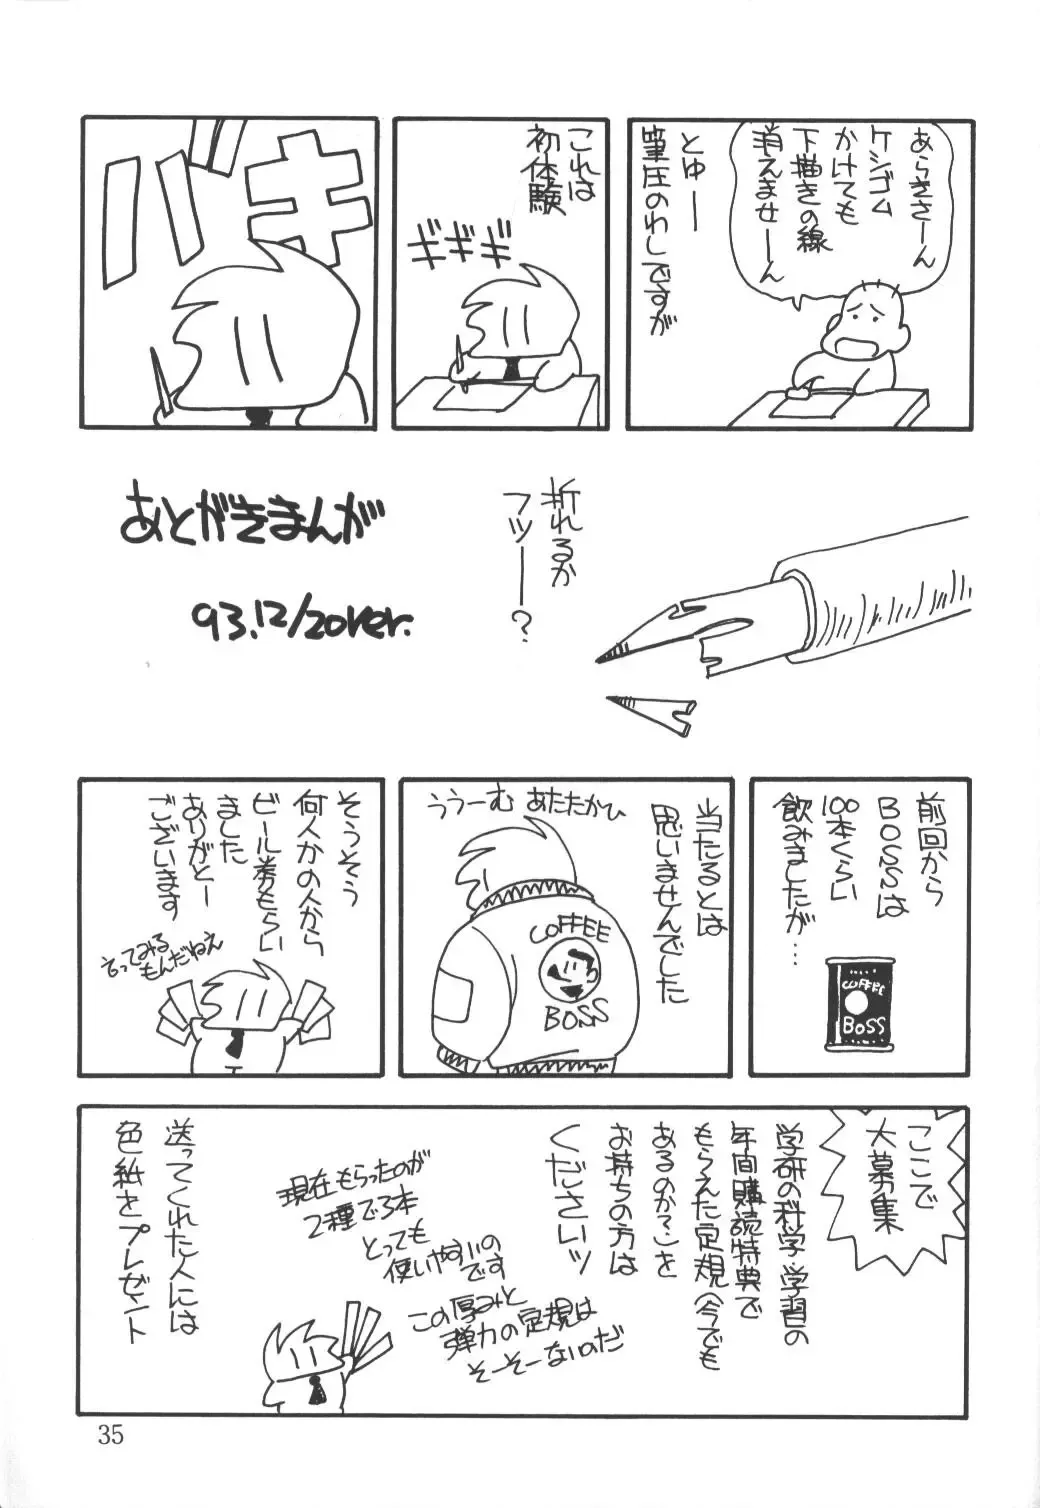 あらきさーん
ケシゴム
かけても
下描きの線
消えませーん
とゆー
筆圧のわしですが
これは
初体験
ギギギ
バキ
折れるか
フツー？
あとがきまんが
93.12/20ver.
前回から
BOSSは
100本くらい
飲みましたが…
COFFEE
BOSS
当たるとは
思いませんでした
ううーむ あたたかひ
COFFEE
BOSS
そうそう
何人かの人から
ビール券もらい
ました
ありがとー
ございます
言ってみる
もんだねえ
ここで
大募集
学研の科学・学習の
年間購読特典で
もらえた定規(今でも
あるのか?)を
お持ちの方は
くださいッ
現在もらったのが
2種で3本
とっても
使いやすいの
です
この厚みと
弾力の定規は
そーそーないのだ
送ってくれた人には
色紙をプレゼント
35